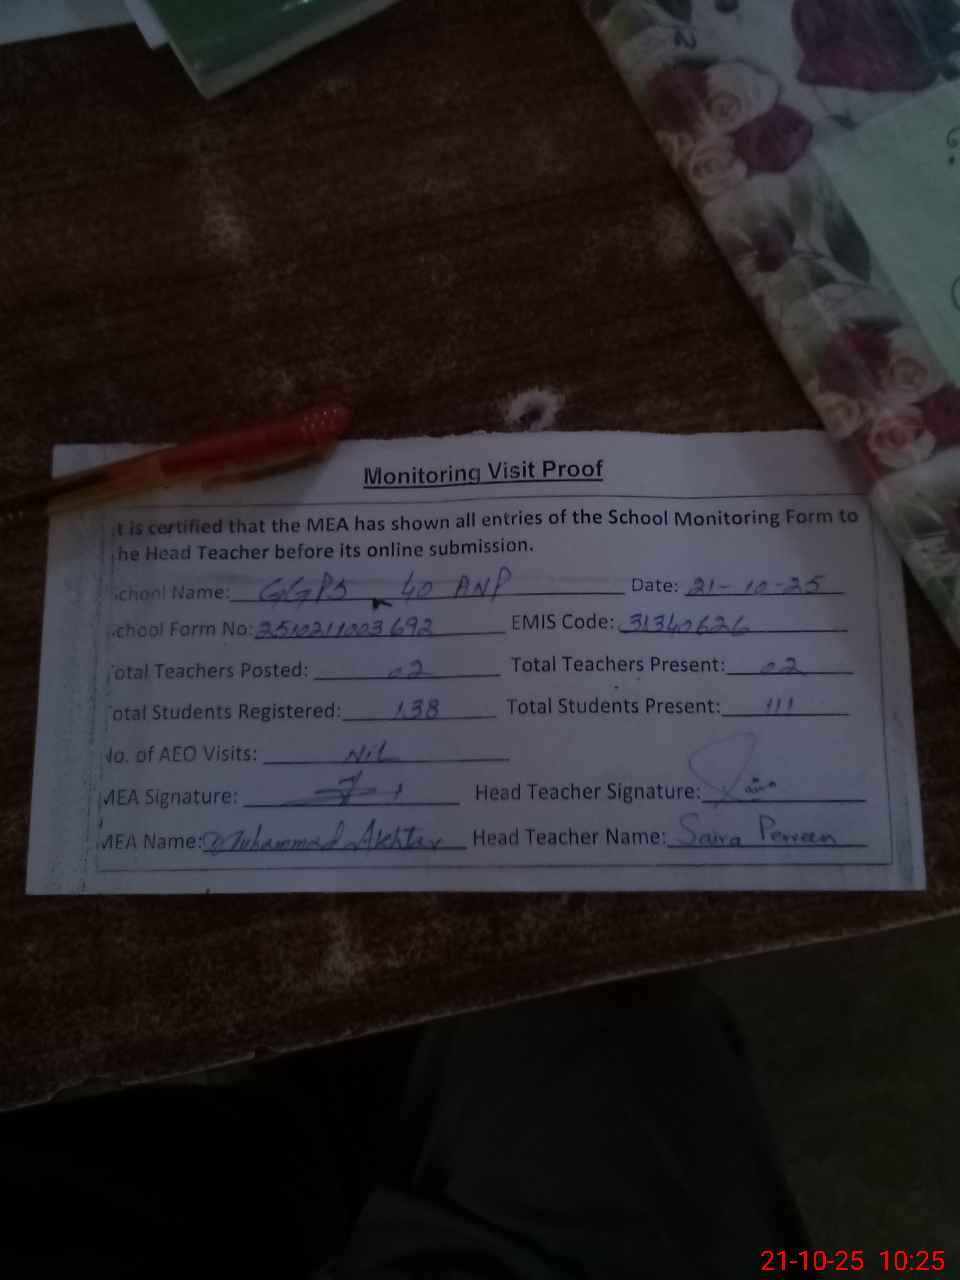 Monitoring Visit Proof
t is certified that the MEA has shown all entries of the School Monitoring Form to
he Head Teacher before its online submission.
chool Name: GGPS 40 ANP Date: 21-10-25
chool Form No: 2510211003692 EMIS Code: 31340626
otal Teachers Posted: 02 Total Teachers Present: 02
otal Students Registered: 138 Total Students Present: 111
No. of AEO Visits: Nil
MEA Signature: Head Teacher Signature:
MEA Name: Muhammad Akhtar Head Teacher Name: Saira Perveen
21-10-25 10:25